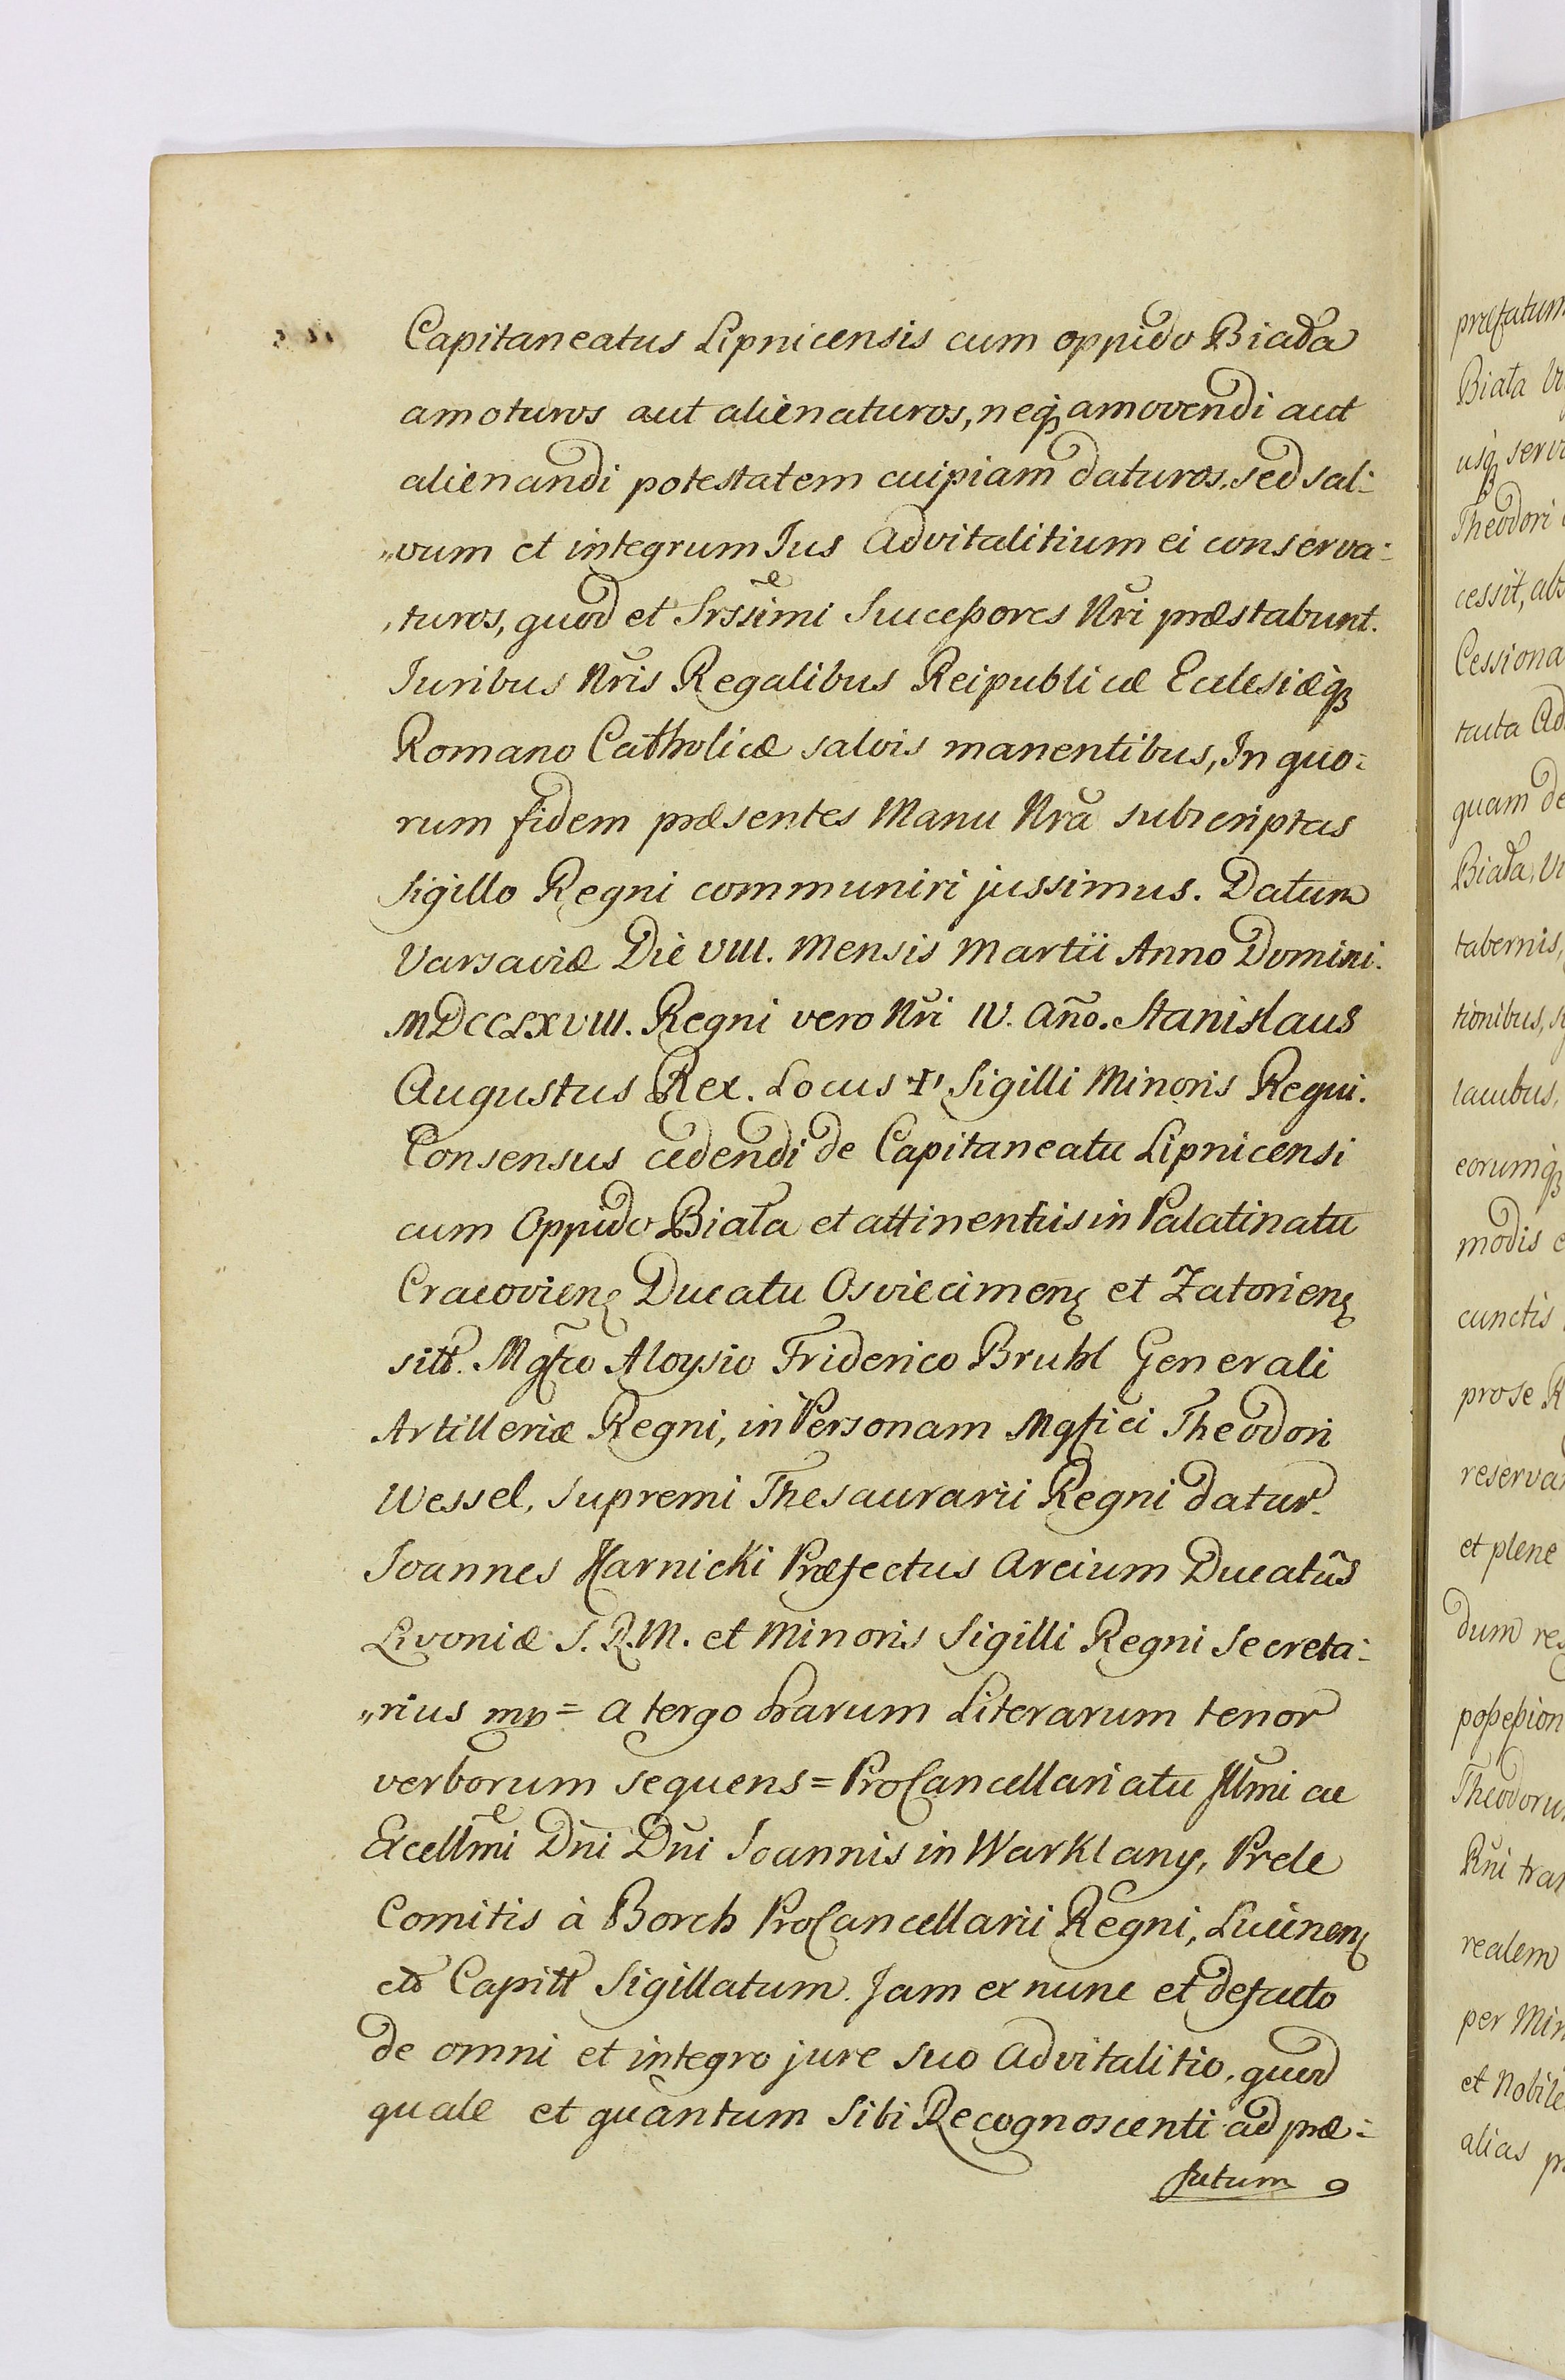 Capitaneatus Lipnicensis cum oppido Biała
amoturos aut alienaturos, neqꝫ amovendi aut
alienandi potestatem cuipiam daturos, sed sal:
„vum et integrum Jus Advitalitium ei conserva:
„turos, quod et Srssimi Successores Nri præstabunt.
Juribus Nris Regalibus Reipublicæ Eclesiæqꝫ
Romano Catholicæ salvis manentibus, In quo:
rum fidem præsentes Manu Nra subscriptas
Sigillo Regni communiri jussimus. Datum
Varsaviæ Die VIII. Mensis Martii Anno Domini.
MDCCLXVIII. Regni vero Nri IV. Año. Stanislaus
Augustus Rex. Locus ✝ Sigilli Minoris Regni.
Consensus cedendi de Capitaneatu Lipnicensi
cum Oppido Biała et attinentiis in Palatinatu
Cracovien: Ducatu Osviecimen: et Zatorien:
sitt. Mgfco Aloysio Friderico Bruhl Generali
Artilleriæ Regni, in Personam Mgfici Theodori
Wessel, Supremi Thesaurarii Regni datur.
Joannes Harnicki Præfectus Arcium Ducatûs
Livoniæ S. R. M. et Minoris Sigilli Regni Secreta:
„rius mp = a tergo harum Literarum tenor
verborum sequens = ProCancellariatu Illmi ac
Excellmi Dni Dni Joannis in Warklany, Prele
Comitis à Borch ProCancellarii Regni, Lucinen:
etc Capitt Sigillatum. Jam ex nunc et defacto
de omni et integro jure suo Advitalitio, quod
quale et quantum Sibi Recognoscenti ad præ:
fatum
præfatum
Biała
usqꝫ
Theodori
cessit,
quam de
Biała,
tabernis,
tionibus,
lacubus,
eorumqꝫ
modis
cunctis
pro se
et plene
dum
Rni
realem
per
et
alias